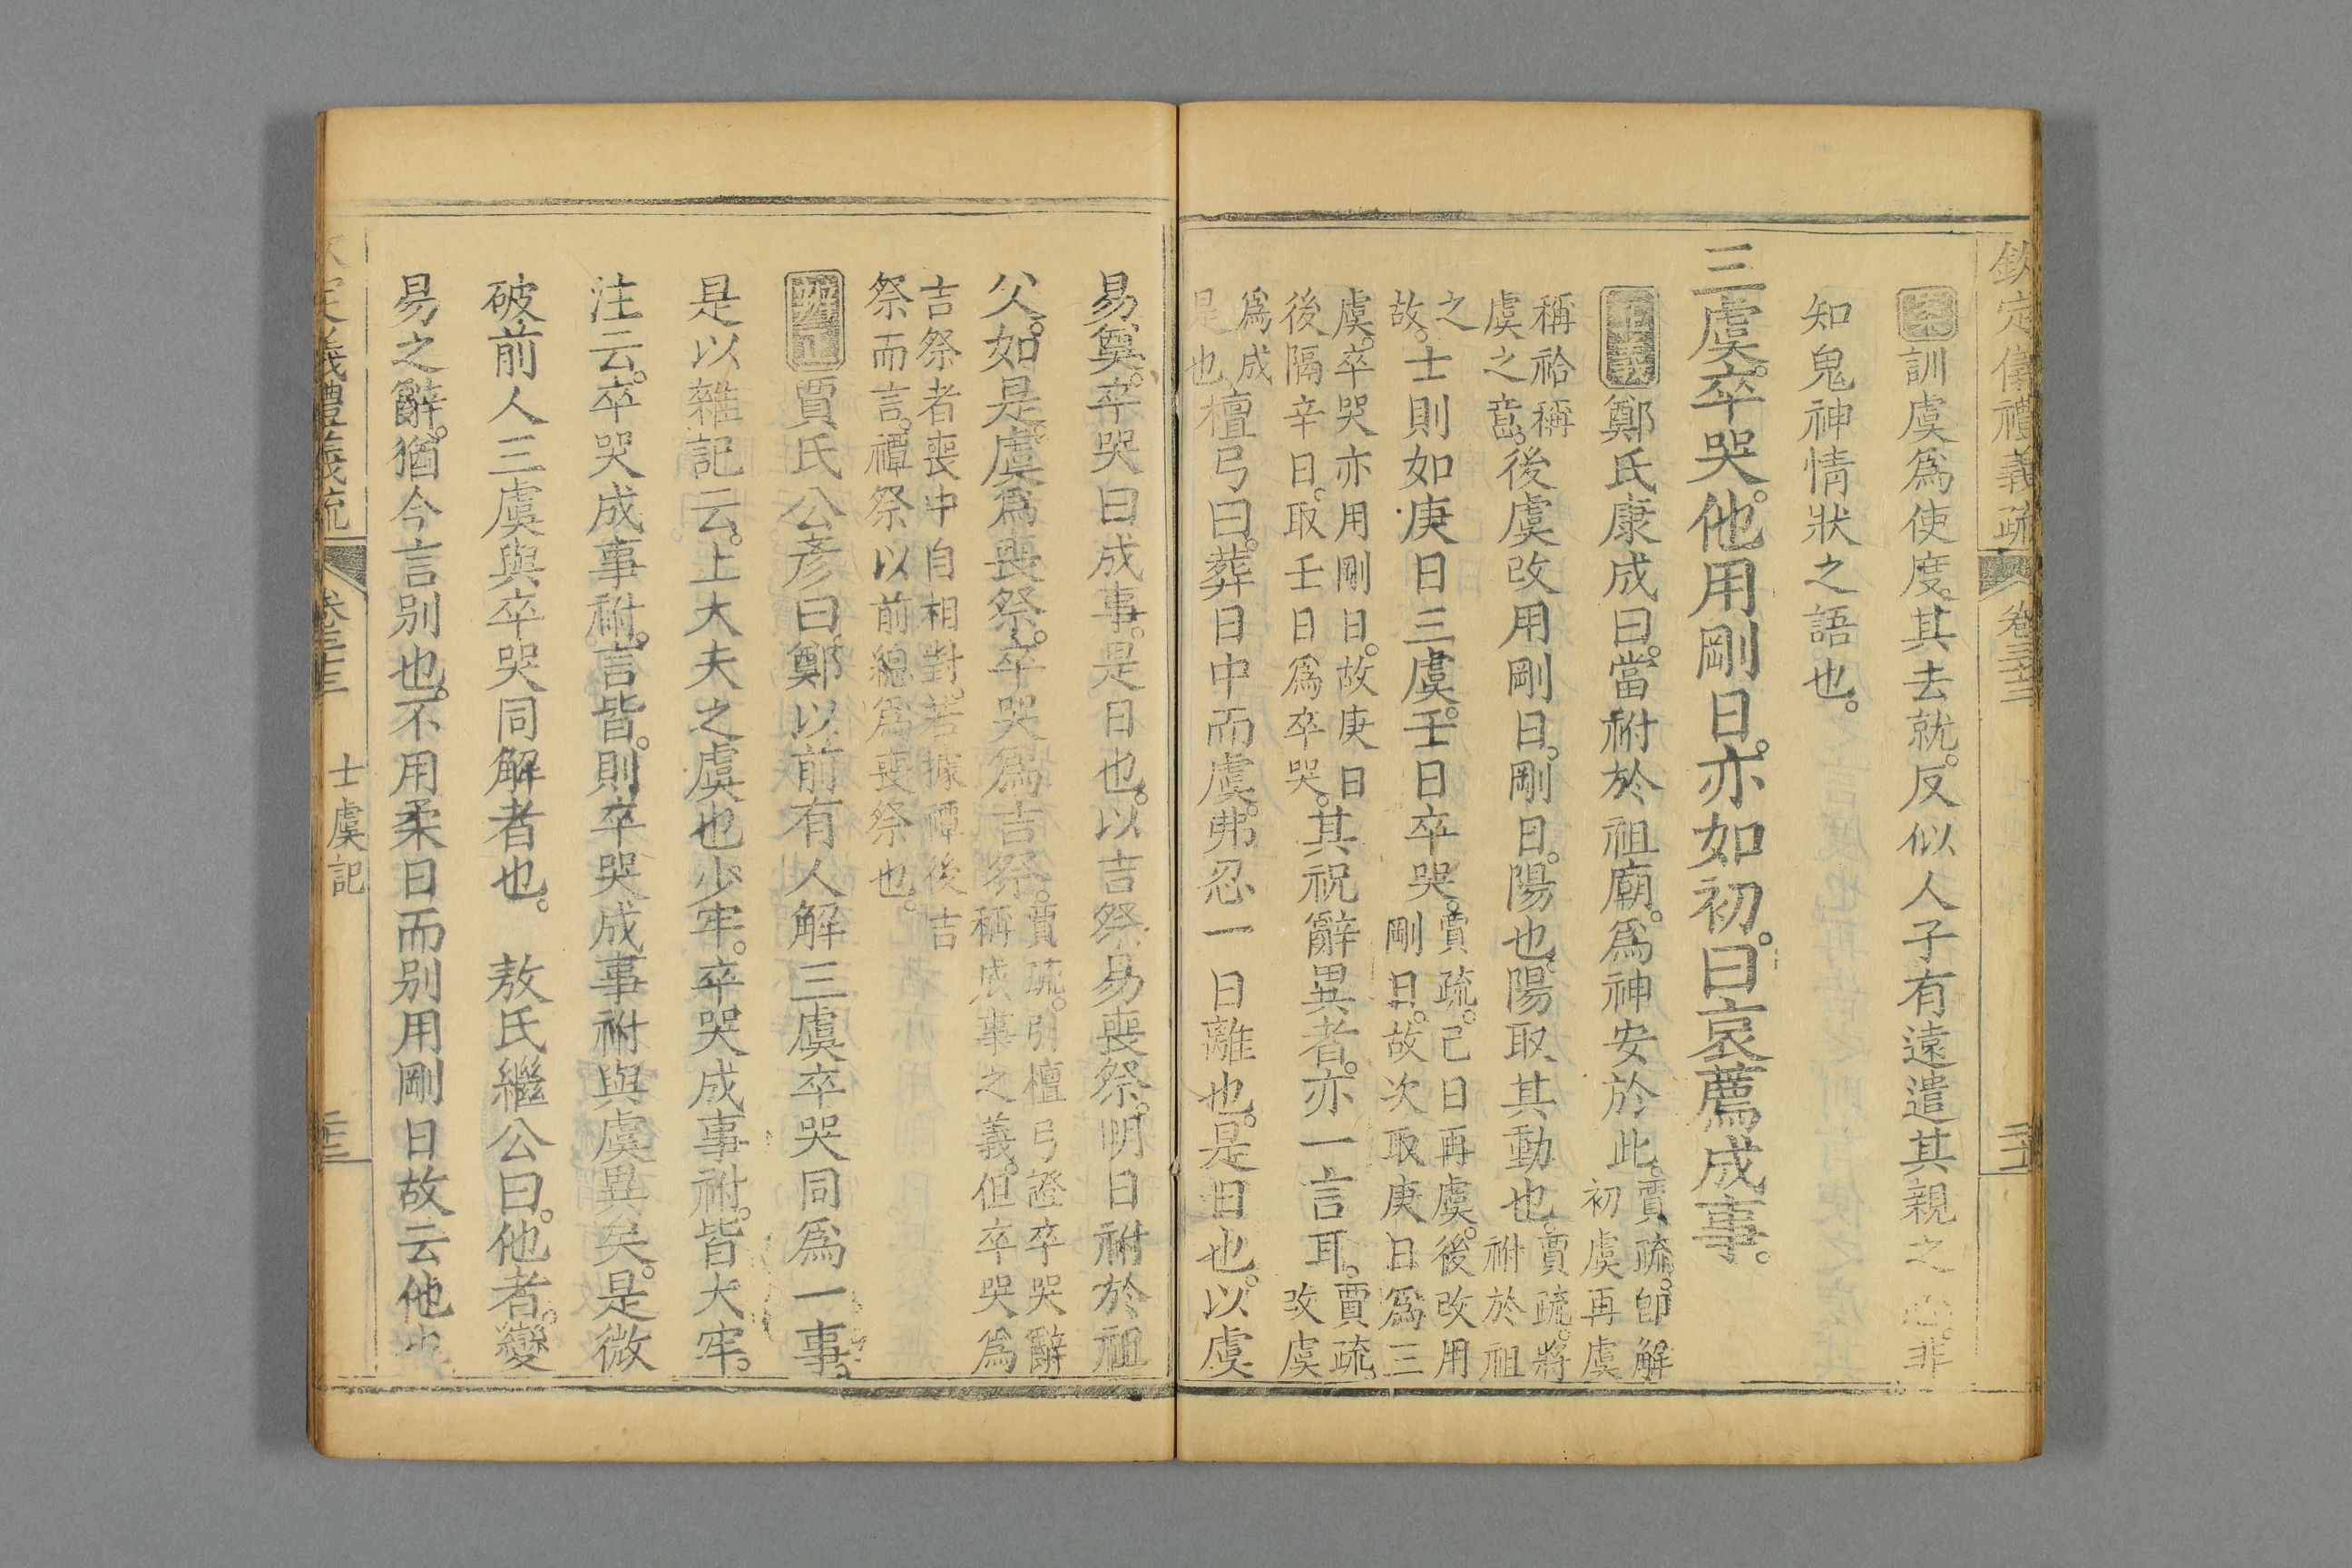 欽定儀禮義疏 卷三十三
案訓虞爲使度。其去就。反似人子有遠遣其親之 非
知鬼神情狀之語也。
三虞。卒哭。他用剛日。亦如初。曰哀薦成事。
正義鄭氏康成曰。當祔於祖廟。爲神安於此。賈疏。卽解初虞再虞
稱祫稱虞之意。後虞改用剛日。剛日。陽也。陽取其動也。賈疏。將祔於祖
之故。士則如庚日三虞。壬日卒哭。賈疏。己日再虞。後改用剛日。故次取庚日爲三
虞。卒哭亦用剛日。故庚日後隔辛日。取壬日爲卒哭。其祝辭異者。亦一言耳。賈疏。改虞
爲成是也檀弓曰。葬日中而虞。弗忍一日離也。是日也。以虞
易奠。卒哭曰成事。是日也。以吉祭易喪祭。明日祔於祖
父。如是。虞爲喪祭。卒哭爲吉祭。賈疏。引檀弓證卒哭辭稱成事之義。但卒哭爲
吉祭者喪中自相對。若據禫後吉祭而言。禫祭以前總爲喪祭也。
辨正賈氏公彥曰。鄭以前有人解三虞卒哭同爲一事。
是以雜記云。上大夫之虞也少牢。卒哭成事祔。皆大牢。
注云。卒哭成事祔。言皆。則卒哭成事祔與虞異矣。是微
破前人三虞與卒哭同解者也。 敖氏繼公曰。他者。變
易之辭。猶今言别也。不用柔日而别用剛日故云他也
定儀禮義疏 卷三十三 士虞記